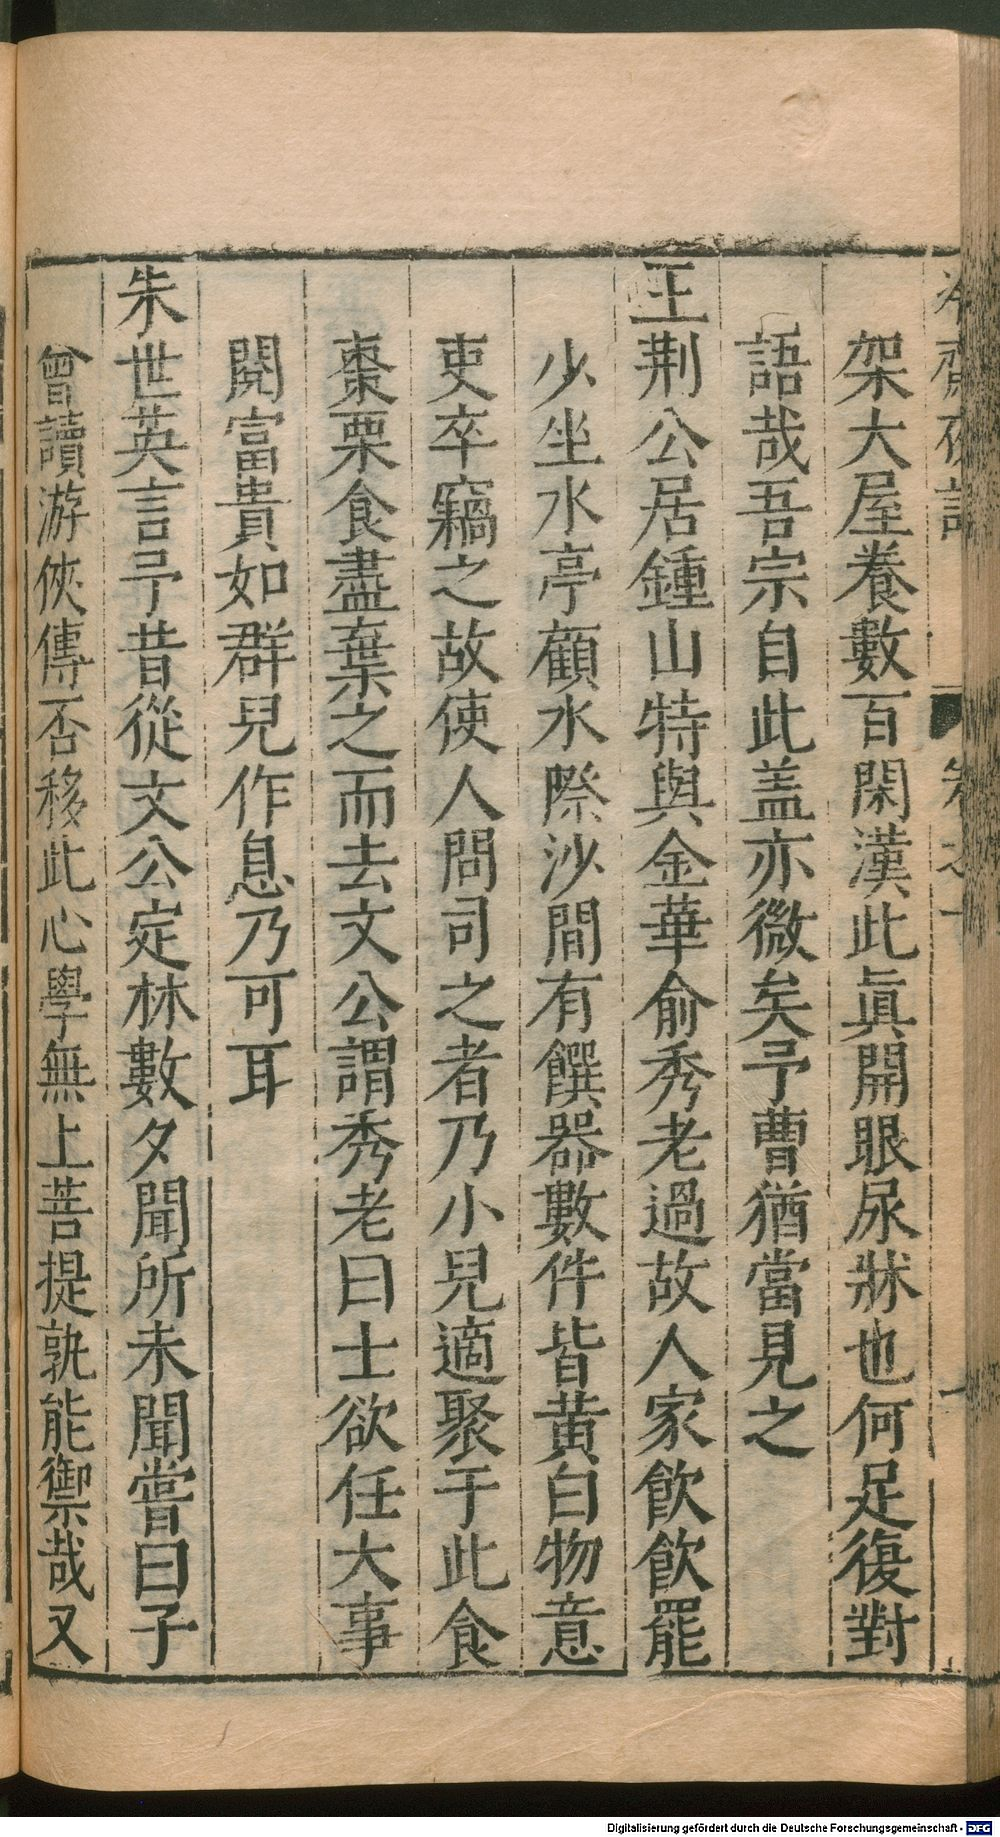 冷齋夜話 卷之十
架大屋養數百閑漢此真開眼尿牀也何足復對
語哉吾宗自此盖亦微矣予曹猶當見之
王荆公居鍾山特與金華俞秀老過故人家飲飲罷
少坐水亭顧水際沙間有饌器數件皆黄白物意
吏卒竊之故使人問司之者乃小兒適聚于此食
棗栗食盡棄之而去文公謂秀老曰士欲任大事
閱富貴如群兒作息乃可耳
朱世英言予昔從文公定林數夕聞所未聞嘗曰子
曾讀游俠傳否移此心學無上菩提孰能禦哉又
Digitalisierung gefördert durch die Deutsche Forschungsgemeinschaft - DFG